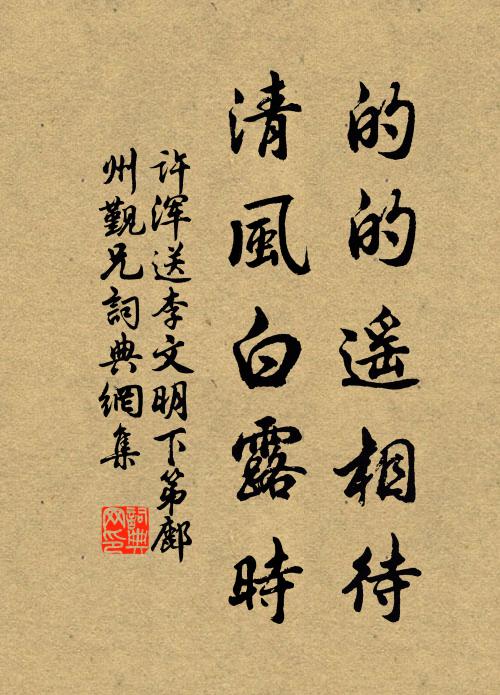 的的遥相待
清風白露時
许浑送李文明下第鄜
州觐兄詞典網集
詞典
网印